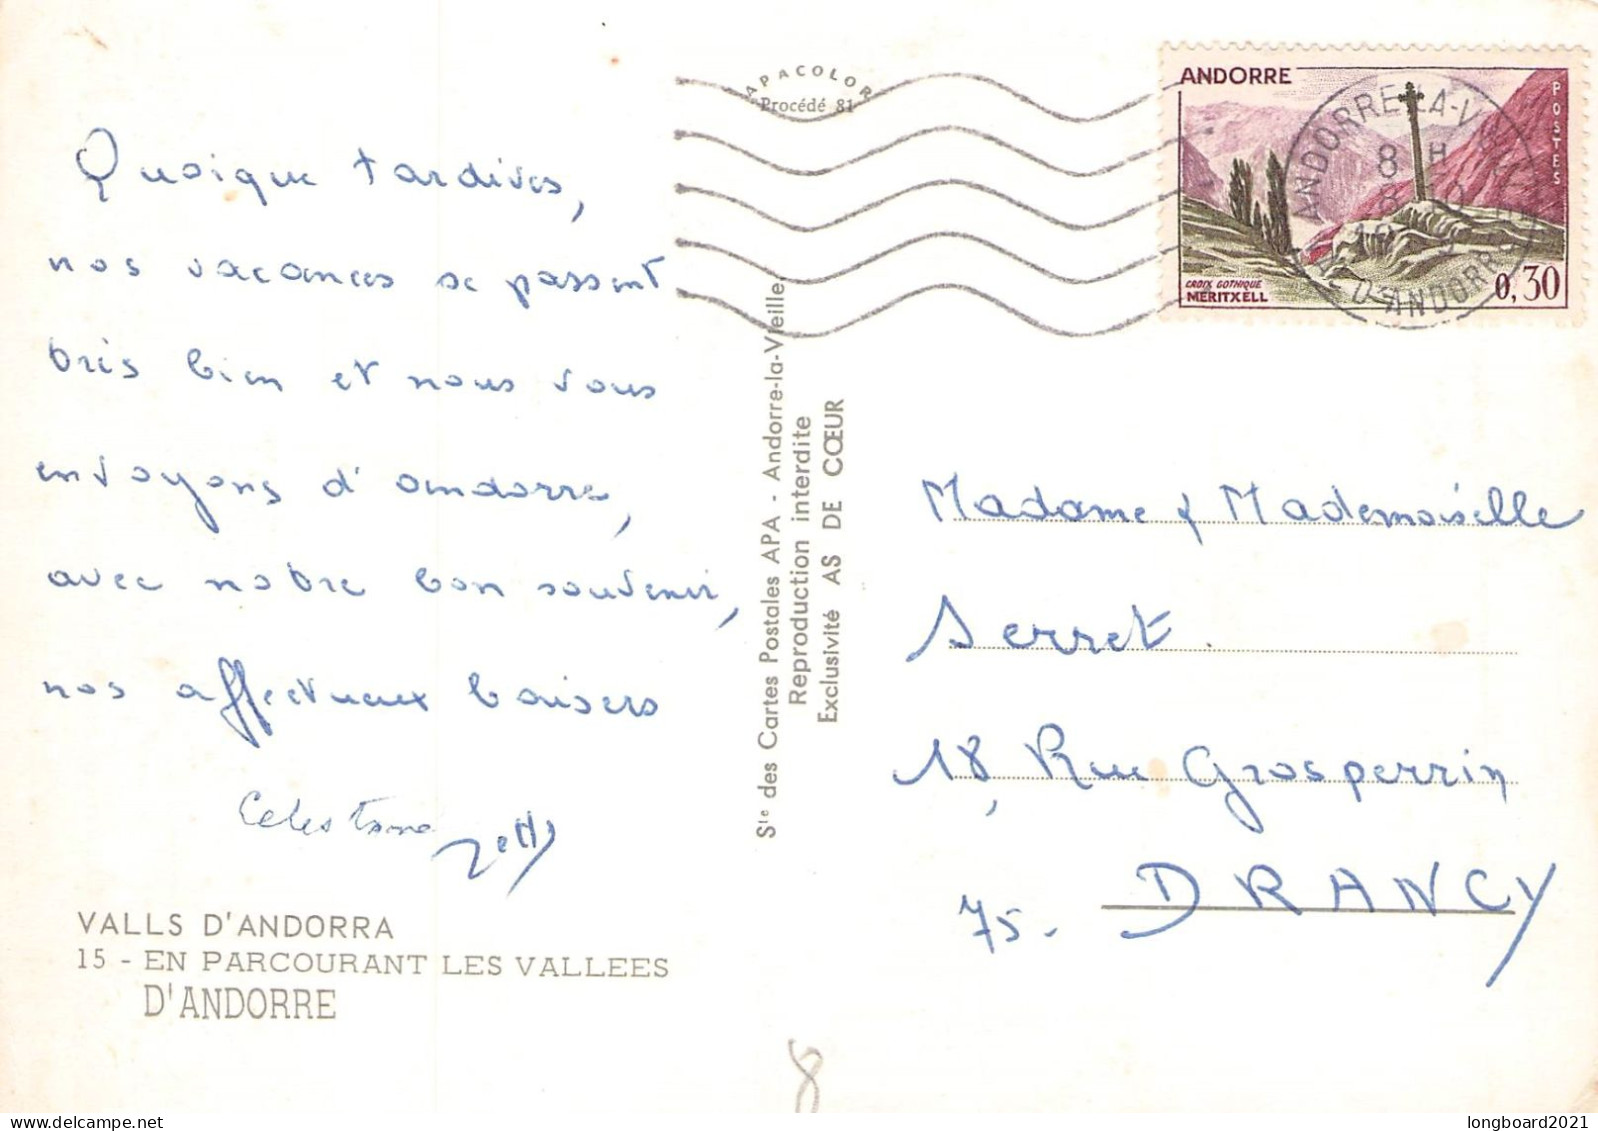 Quoique tardives,
nos vacances se passent
très bien et nous vous
envoyons d'andorre,
avec notre bon souvenir,
nos affectueux baisers
VALLS D'ANDORRA
15 - EN PARCOURANT LES VALLEES
D'ANDORRE
APACOLOR
Procédé 81
Sté des Cartes Postales APA - Andorre-la-Vieille
Reproduction interdite
Exclusivité AS DE CŒUR
ANDORRE
POSTES
CROIX GOTHIQUE
MERITXELL
0,30
ANDORRE-LA-VIEILLE
8 H
D'ANDORRE
Madame & Mademoiselle
Serret.
18, Rue Grosperrin
75. DRANCY
8
longboard2021